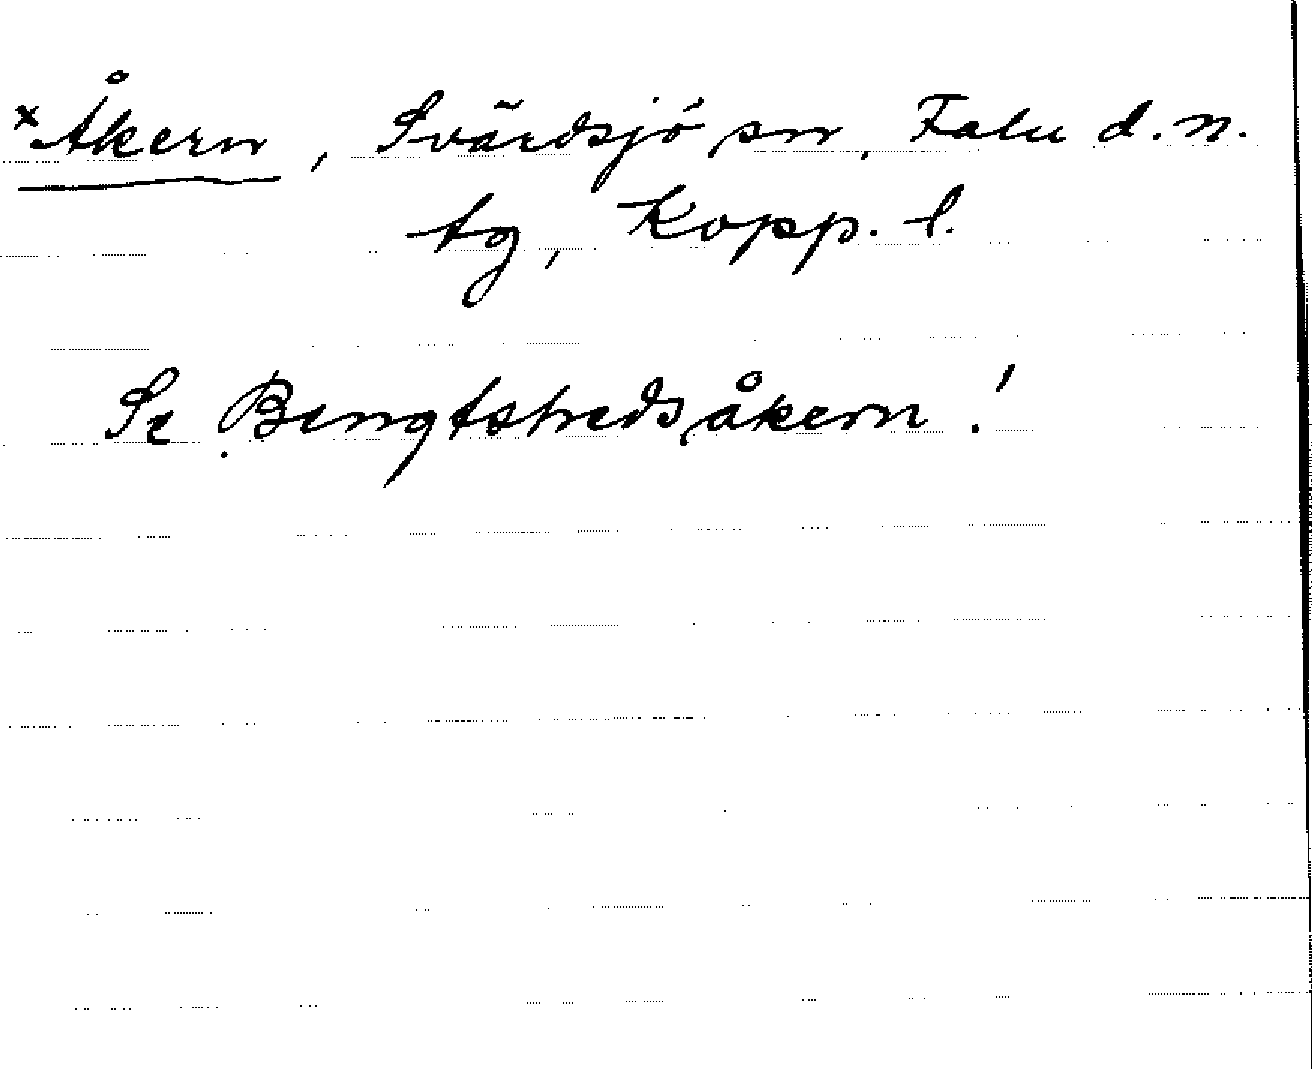 x Åkern, Svärdsjö sn, Falu d.n.
tg, Kopp. l.
Se Bengtshedsåkern!